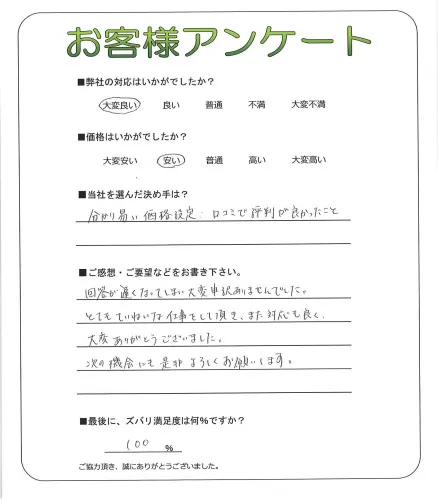 お客様アンケート
■弊社の対応はいかがでしたか?
大変良い 良い 普通 不満 大変不満
■価格はいかがでしたか?
大変安い 安い 普通 高い 大変高い
■当社を選んだ決め手は?
分かり易い価格設定、口コミで評判が良かったこと
■ご感想・ご要望などをお書き下さい。
回答が遅くなってしまい大変申訳ありませんでした。
とてもていねいな仕事をして頂き、また対応も良く、
大変ありがとうございました。
次の機会にも是非よろしくお願いします。
■最後に、ズバリ満足度は何%ですか?
100 %
ご協力頂き、誠にありがとうございました。